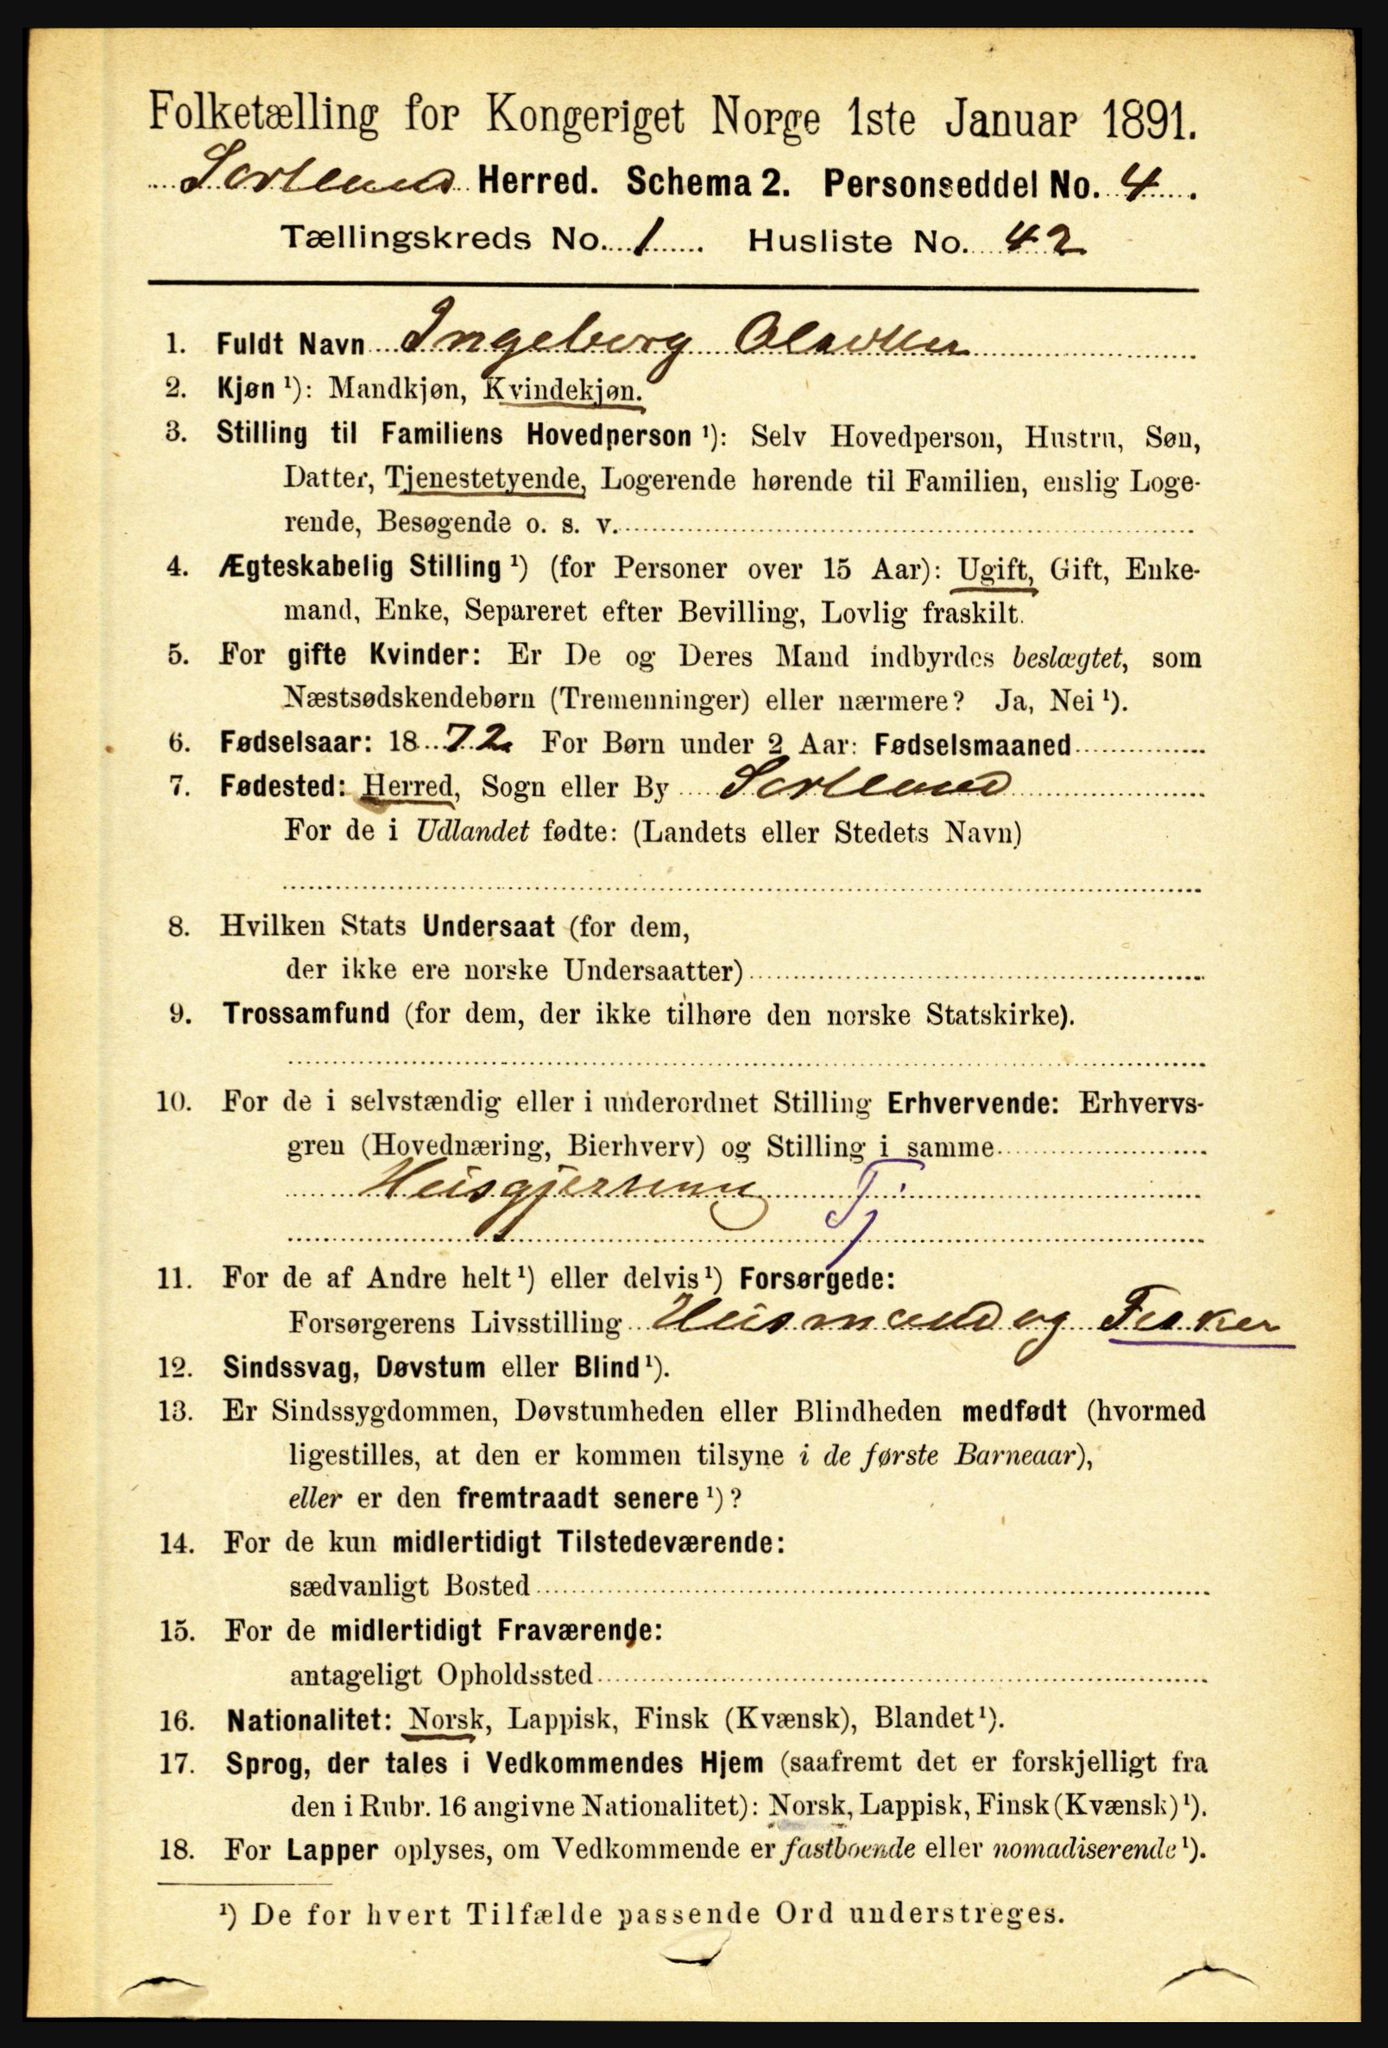 Folketælling for Kongeriget Norge 1ste Januar 1891.
Sortland Herred. Schema 2. Personseddel No. 4.
Tællingskreds No. 1. Husliste No. 42
1. Fuldt Navn Ingeborg Olsdtter
2. Kjøn ¹): Mandkjøn, Kvindekjøn.
3. Stilling til Familiens Hovedperson ¹): Selv Hovedperson, Hustru, Søn,
Datter, Tjenestetyende, Logerende hørende til Familien, enslig Loge-
rende, Besøgende o. s. v.
4. Ægteskabelig Stilling ¹) (for Personer over 15 Aar): Ugift, Gift, Enke-
mand, Enke, Separeret efter Bevilling, Lovlig fraskilt.
5. For gifte Kvinder: Er De og Deres Mand indbyrdes beslægtet, som
Næstsødskendebørn (Tremenninger) eller nærmere? Ja, Nei ¹).
6. Fødselsaar: 1872 For Børn under 2 Aar: Fødselsmaaned
7. Fødested: Herred, Sogn eller By Sortland
For de i Udlandet fødte: (Landets eller Stedets Navn)
8. Hvilken Stats Undersaat (for dem,
der ikke ere norske Undersaatter)
9. Trossamfund (for dem, der ikke tilhøre den norske Statskirke).
10. For de i selvstændig eller i underordnet Stilling Erhvervende: Erhvervs-
gren (Hovednæring, Bierhverv) og Stilling i samme
Husgjerning Tj
11. For de af Andre helt ¹) eller delvis ¹) Forsørgede:
Forsørgerens Livsstilling Husmand og Fisker
12. Sindssvag, Døvstum eller Blind ¹).
13. Er Sindssygdommen, Døvstumheden eller Blindheden medfødt (hvormed
ligestilles, at den er kommen tilsyne i de første Barneaar),
eller er den fremtraadt senere ¹)?
14. For de kun midlertidigt Tilstedeværende:
sædvanligt Bosted
15. For de midlertidigt Fraværende:
antageligt Opholdssted
16. Nationalitet: Norsk, Lappisk, Finsk (Kvænsk), Blandet ¹).
17. Sprog, der tales i Vedkommendes Hjem (saafremt det er forskjelligt fra
den i Rubr. 16 angivne Nationalitet): Norsk, Lappisk, Finsk (Kvænsk) ¹).
18. For Lapper oplyses, om Vedkommende er fastboende eller nomadiserende ¹).
¹) De for hvert Tilfælde passende Ord understreges.